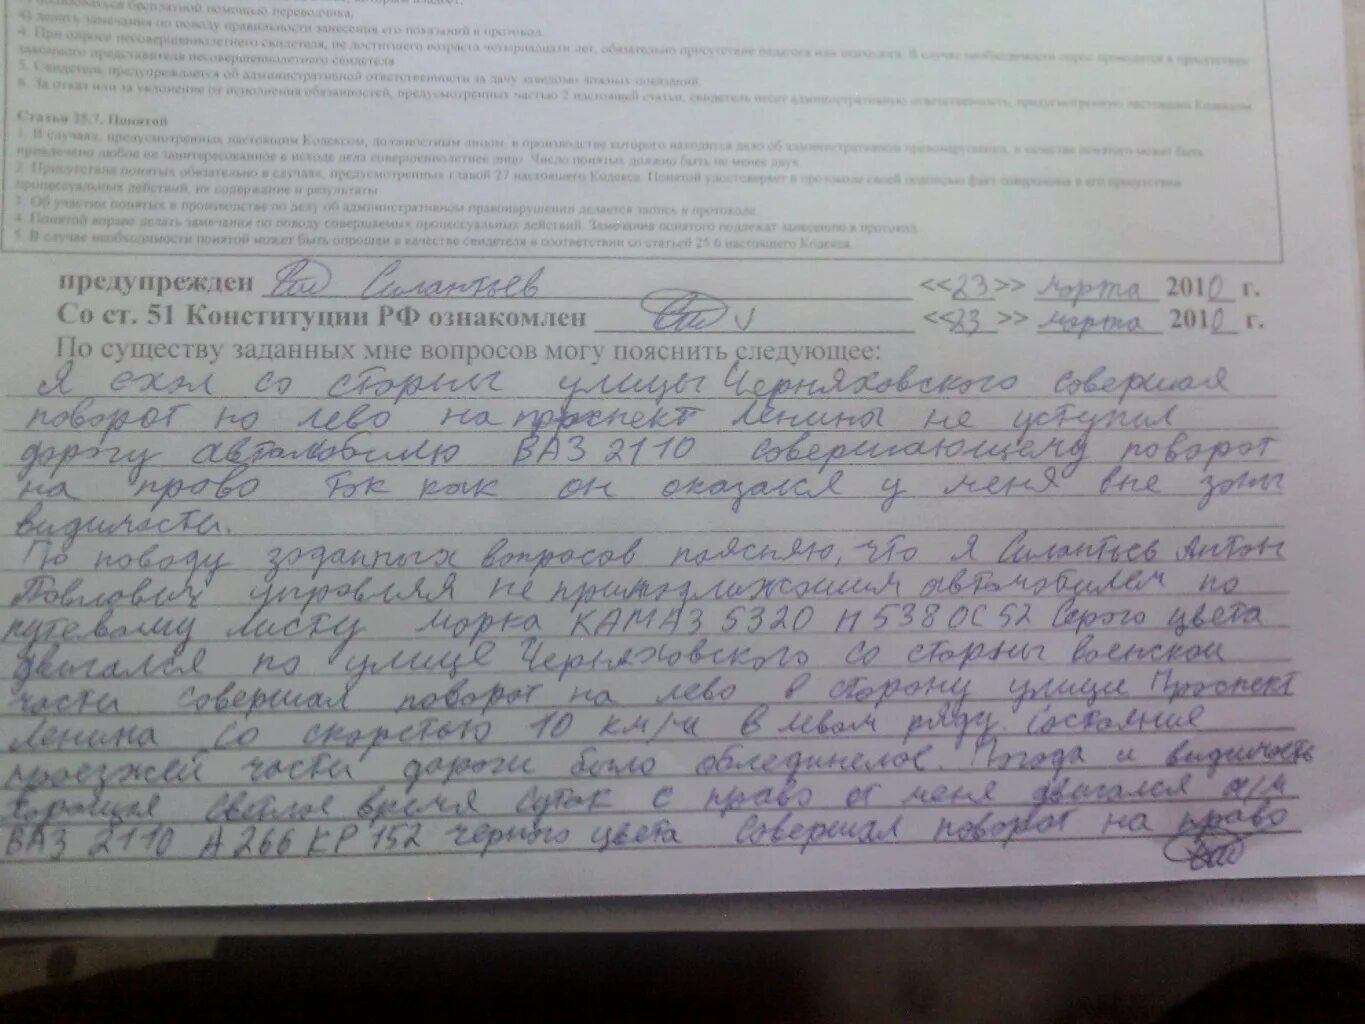 пользоваться бесплатной помощью переводчика,
4) делать замечания по поводу правильности занесения его показаний в протокол.
4. При опросе несовершеннолетнего свидетеля, не достигшего возраста четырнадцати лет, обязательно присутствие педагога или психолога. В случае необходимости опрос проводится в присутствии
законного представителя несовершеннолетнего свидетеля
5. Свидетель предупреждается об административной ответственности за дачу заведомо ложных показаний.
6. За отказ или за уклонение от исполнения обязанностей, предусмотренных частью 2 настоящей статьи, свидетель несет административную ответственность, предусмотренную настоящим Кодексом
Статья 25.7. Понятой
1. В случаях, предусмотренных настоящим Кодексом, должностным лицом, в производстве которого находится дело об административном правонарушении, в качестве понятого может быть
привлечено любое не заинтересованное в исходе дела совершеннолетнее лицо. Число понятых должно быть не менее двух
2. Присутствие понятых обязательно в случаях, предусмотренных главой 27 настоящего Кодекса. Понятой удостоверяет в протоколе своей подписью факт совершения в его присутствии
процессуальных действий, их содержание и результаты
3. Об участии понятых в производстве по делу об административном правонарушении делается запись в протоколе.
4. Понятой вправе делать замечания по поводу совершаемых процессуальных действий. Замечания понятого подлежат занесению в протокол.
5. В случае необходимости понятой может быть опрошен в качестве свидетеля в соответствии со статьей 25.6 настоящего Кодекса.
предупрежден Силантьев <<23>> марта 2010 г.
Со ст. 51 Конституции РФ ознакомлен <<23>> марта 2010 г.
По существу заданных мне вопросов могу пояснить следующее:
Я ехал со стороны улицы Черняховского совершая
поворот на лево на проспект Ленины не уступил
дорогу автомобилю ВАЗ 2110 совершающему поворот
на право так как он оказался у меня вне зоны
видимости.
По поводу заданных вопросов поясняю, что я Силантьев Антон
Павлович управляя не принадлежащим автомобилем по
путевому листу марка КАМАЗ 5320 Н538ОС52 Серого цвета
двигался по улице Черняховского со стороны военской
части совершал поворот на лево в сторону улици Проспект
Ленина со скоростью 10 км/ч в левом ряду. Состояние
проезжей части дороги было обледенелое. Погода и видимость
хорошая светлое время суток с право от меня двигался а/м
ВАЗ 2110 А266КР152 черного цвета совершал поворот на право